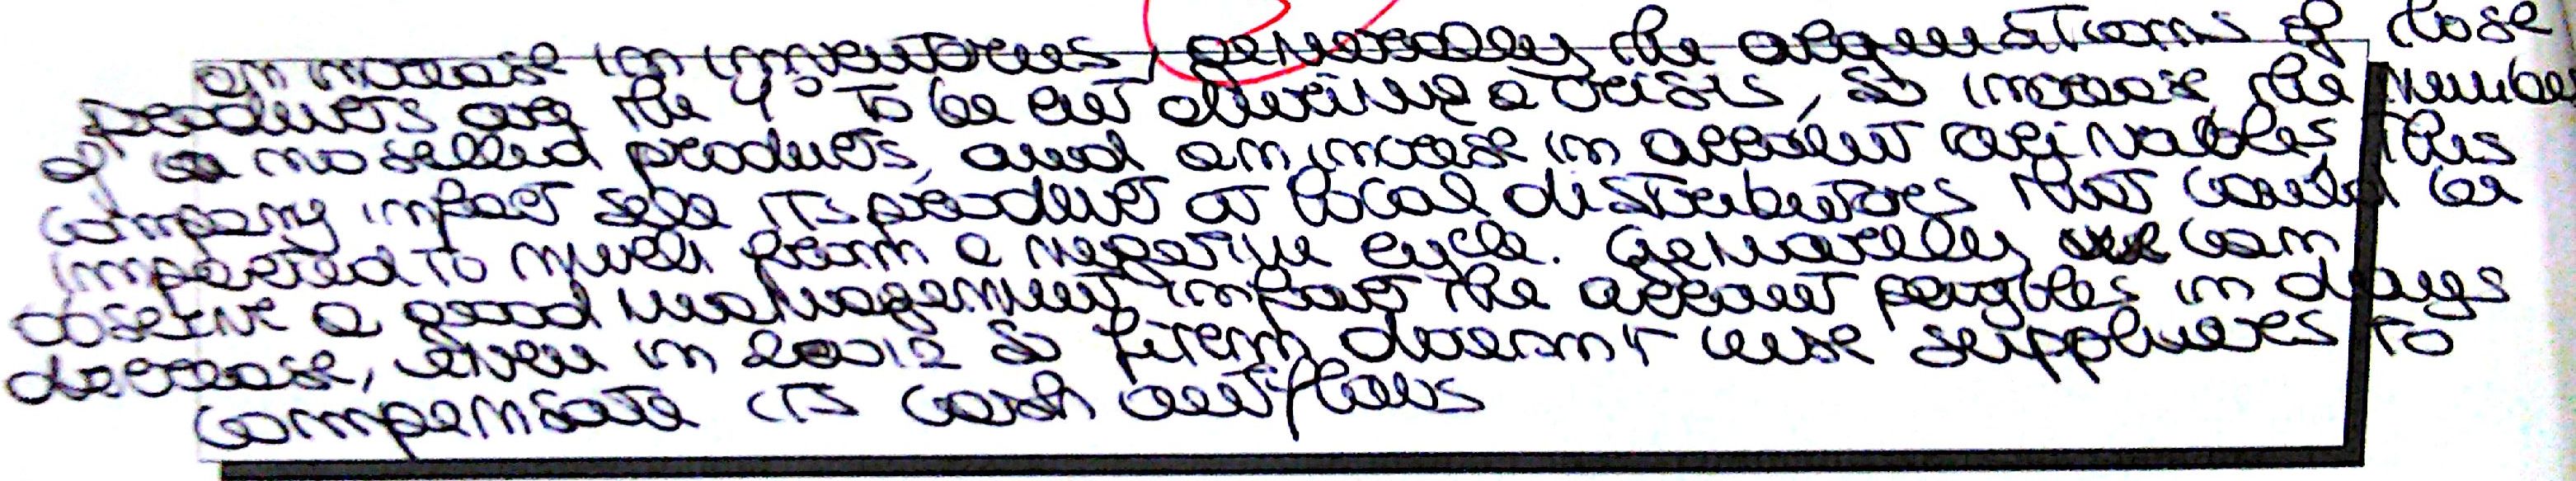 an increase in inventories, generally the acquisitions of close
products are the 1° to be cut during a crisis, so increase the number
of no selled products, and an increase in account receivables, this
company infact sells its product at local distributors that could be
impacted to much from a negative cycle. Generally we can
observe a good management infact the account payables in days
decrease, even in 2012 so firm doesn't use suppliers to
compensate its cash outflows